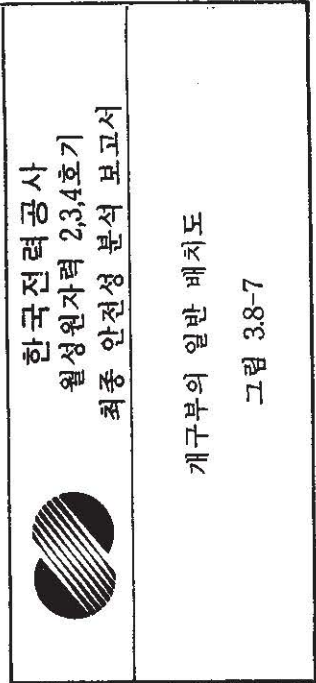 한국전력공사
월성원자력 2,3,4호기
최종 안전성 분석 보고서
개구부의 일반 배치도
그림 3.8-7